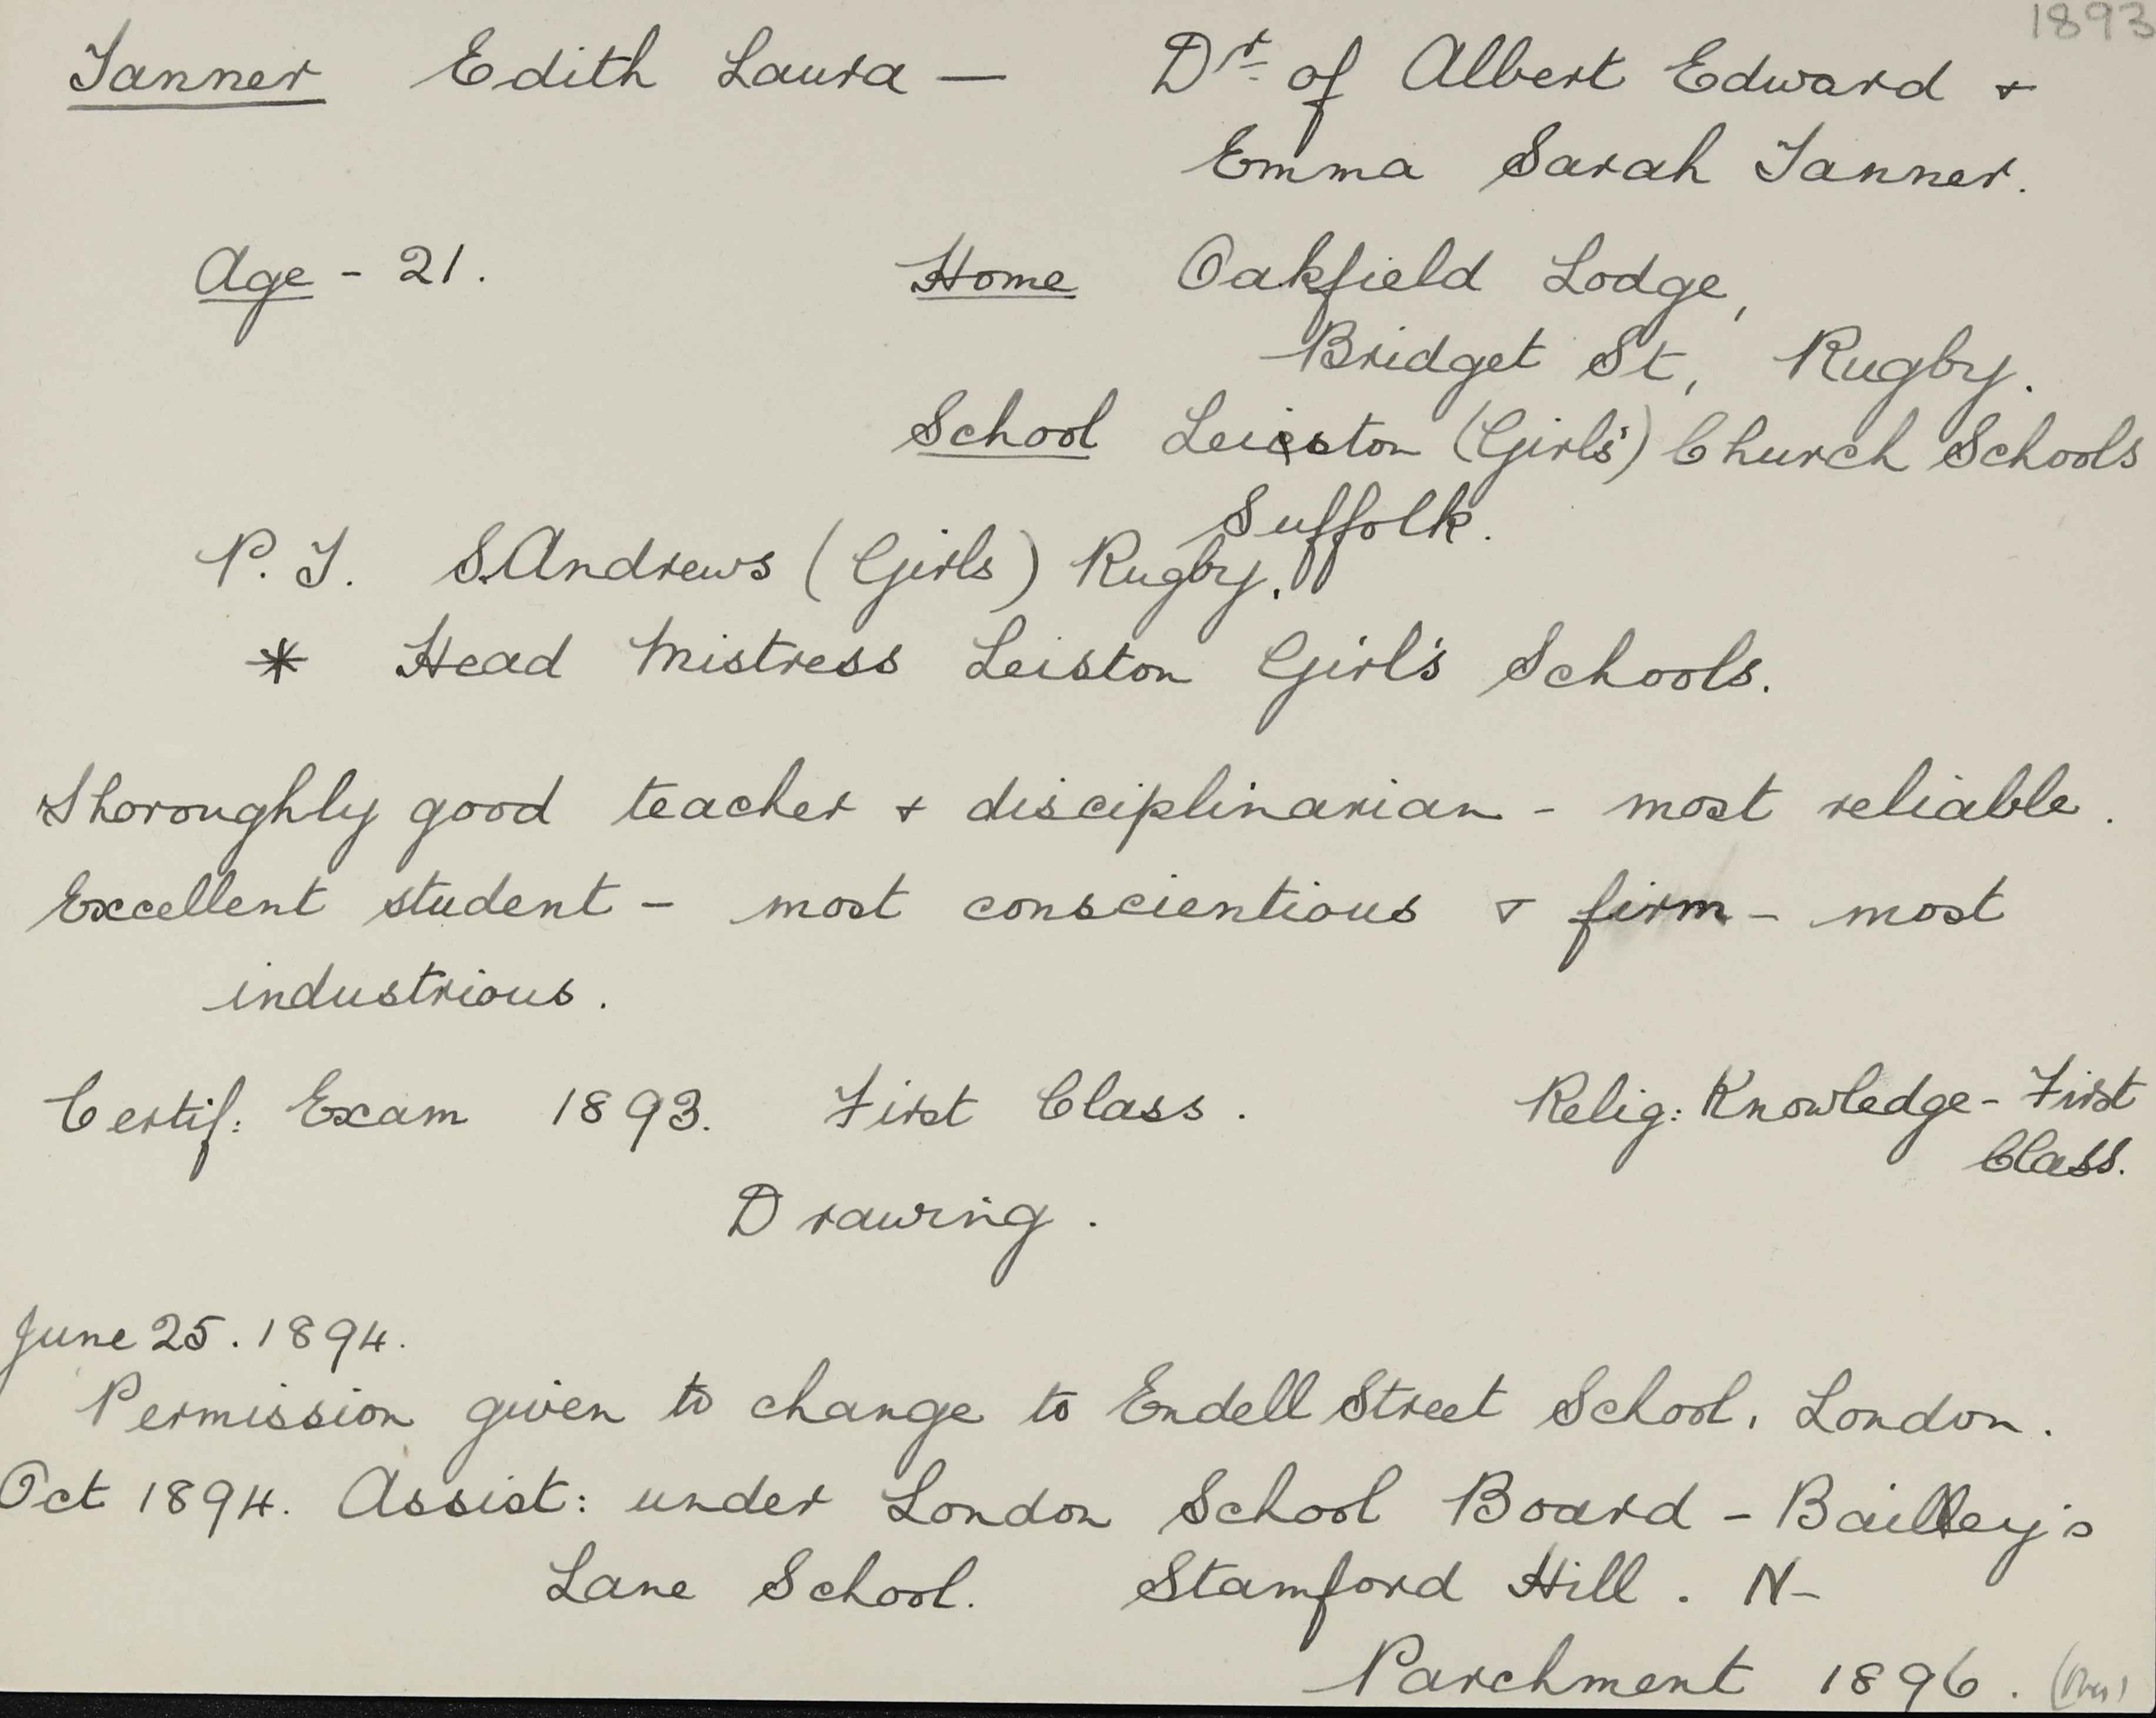 1893
Tanner Edith Laura — Dr. of Albert Edward &
Emma Sarah Tanner.
Age - 21. Home Oakfield Lodge,
Bridget St, Rugby.
School Leiston (Girls') Church Schools
Suffolk.
P.T. S.Andrews (Girls) Rugby.
* Head Mistress Leiston Girl's Schools.
Thoroughly good teacher & disciplinarian - most reliable.
Excellent student - most conscientious & firm - most
industrious.
Certif: Exam 1893. First Class. Relig: Knowledge - First
Class.
Drawing.
June 25. 1894.
Permission given to change to Endell Street School, London.
Oct 1894. Assist: under London School Board - Bailley's
Lane School. Stamford Hill. N-
Parchment 1896. (Over)